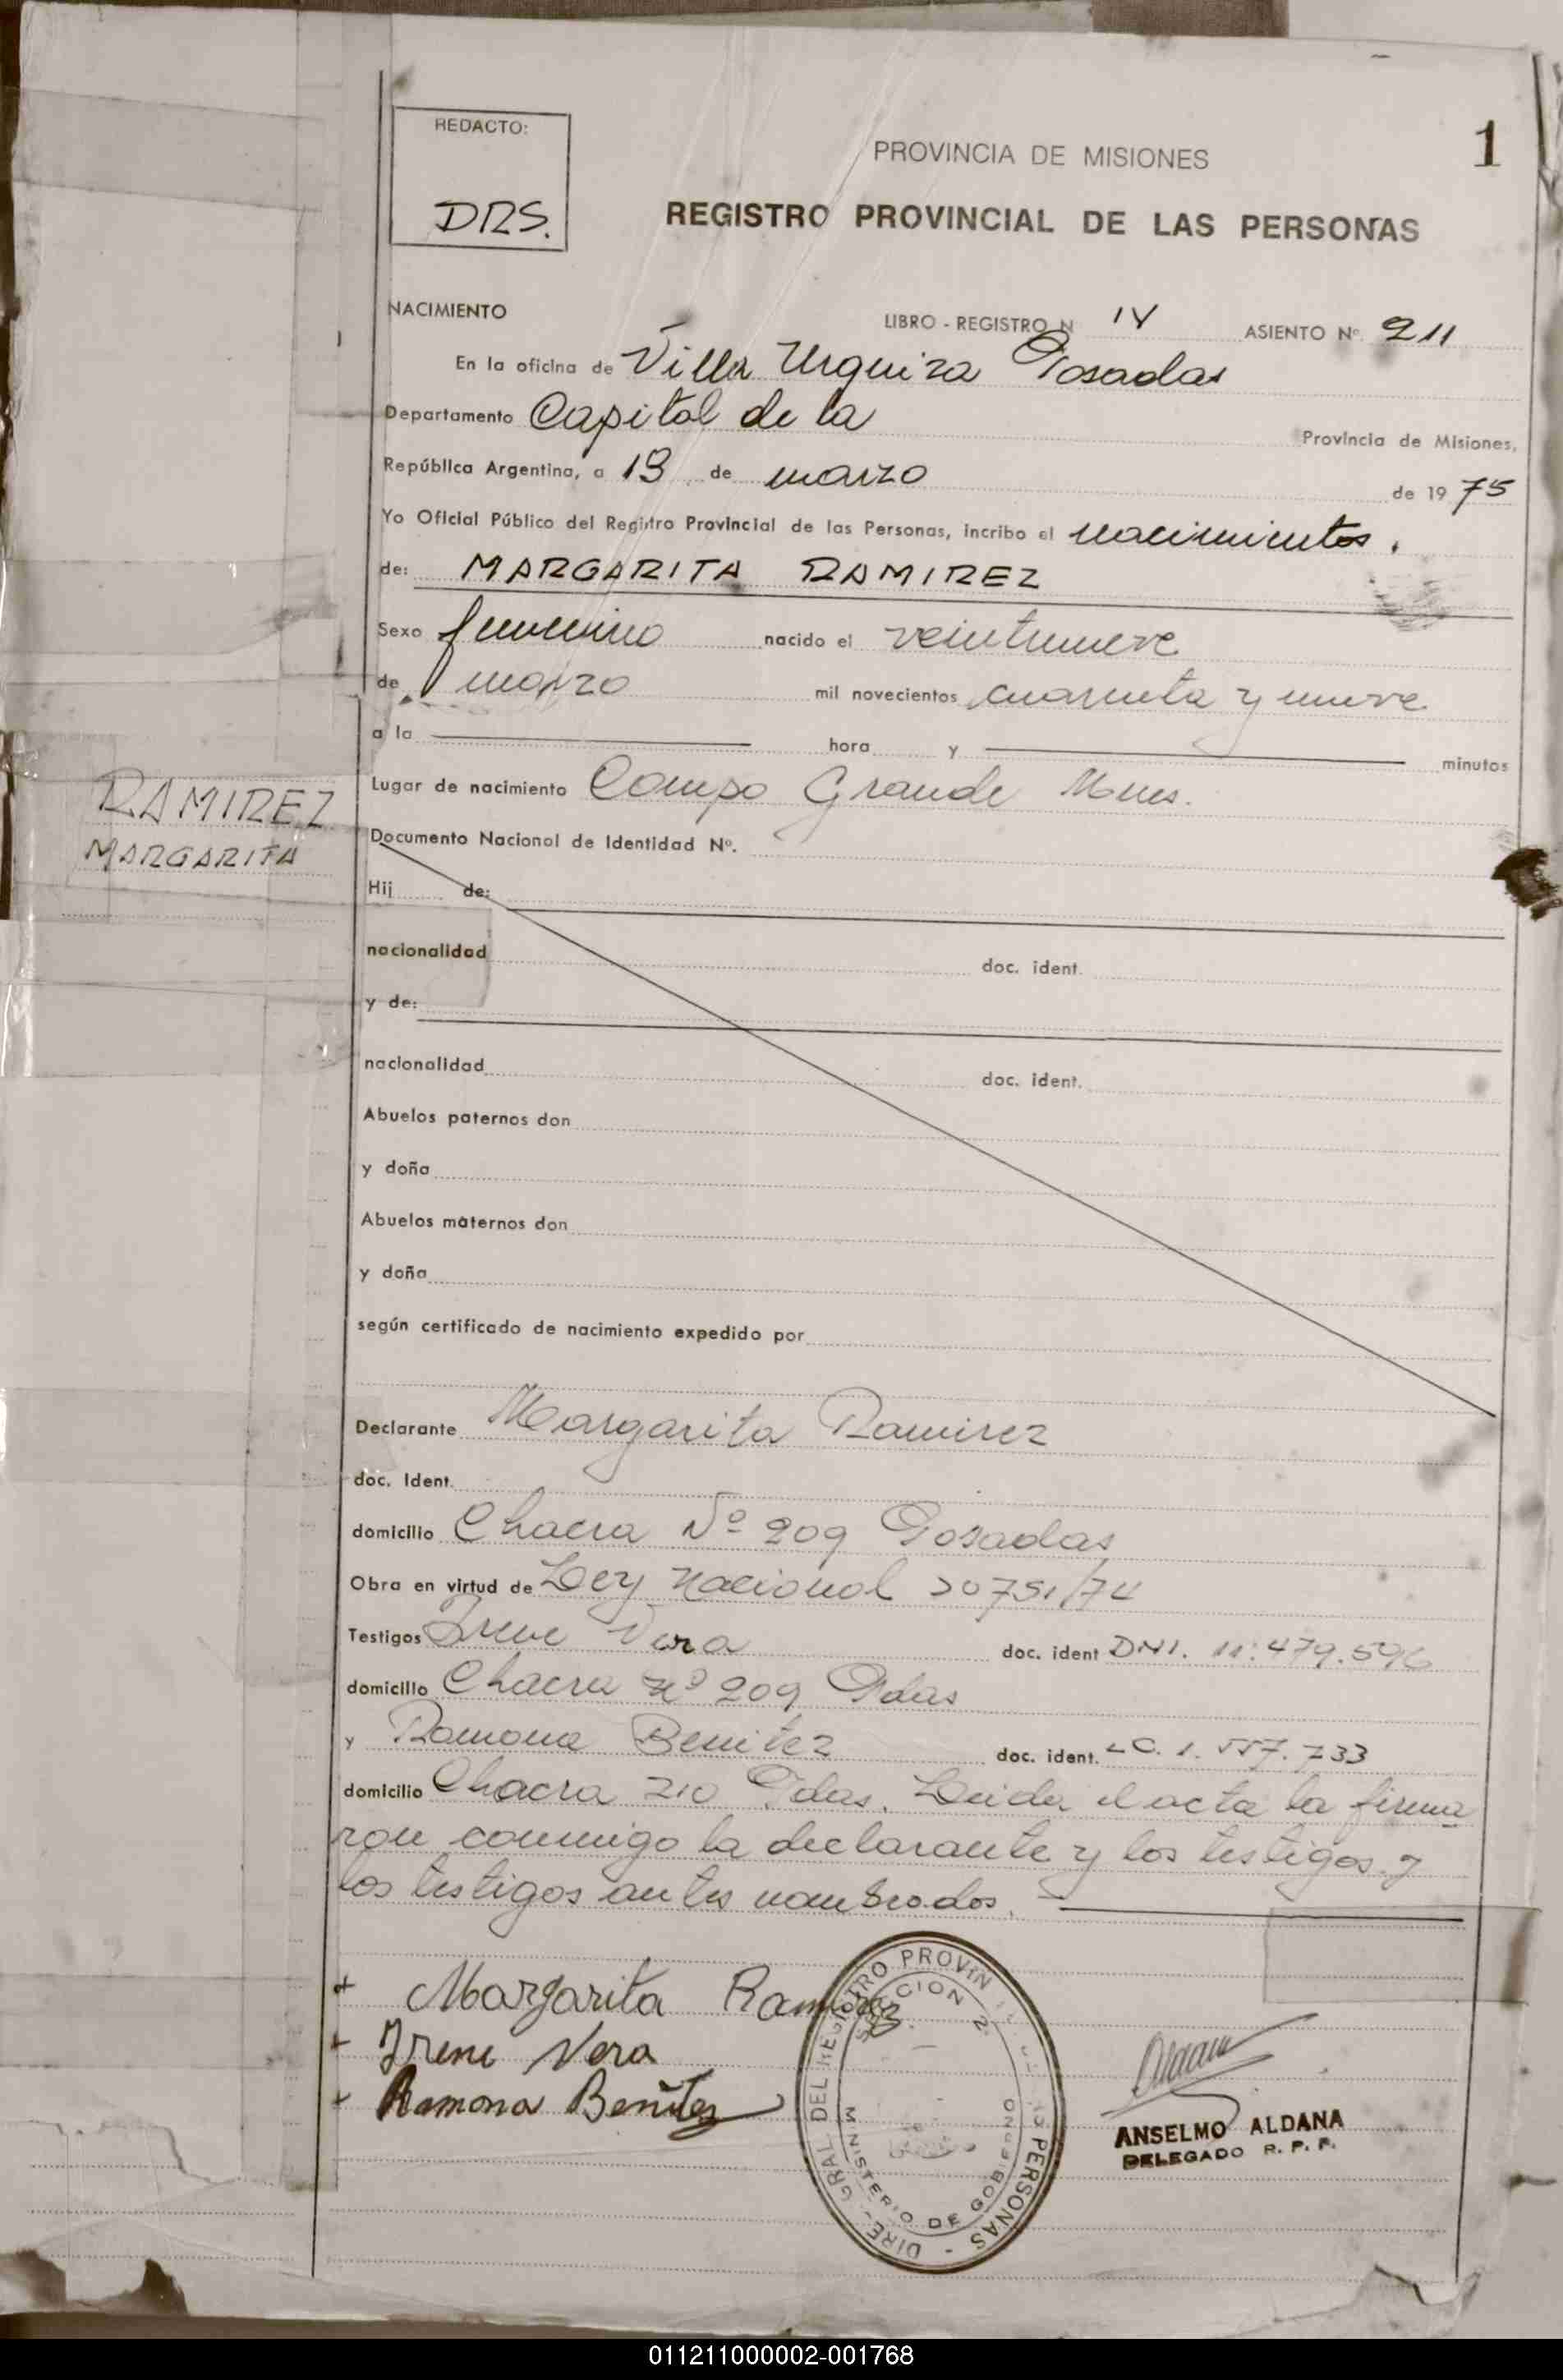 REDACTO:
DRS.
1
PROVINCIA DE MISIONES
REGISTRO PROVINCIAL DE LAS PERSONAS
NACIMIENTO
LIBRO - REGISTRO N IV ASIENTO Nº. 211
En la oficina de Villa Urquiza Posadas
Departamento Capital de la Provincia de Misiones,
República Argentina, a 13 de marzo de 19 75
Yo Oficial Público del Registro Provincial de las Personas, incribo el nacimientos.
de: MARGARITA RAMIREZ
Sexo femenino nacido el veintinueve
de marzo mil novecientos cuarenta y nueve
a la hora y minutos
Lugar de nacimiento Campo Grande Mnes.
RAMIREZ
MARGARITA
Documento Nacional de Identidad Nº.
Hij de:
nacionalidad doc. ident.
y de:
nacionalidad doc. ident.
Abuelos paternos don
y doña
Abuelos maternos don
y doña
según certificado de nacimiento expedido por
Declarante Margarita Ramirez
doc. Ident.
domicilio Chacra Nº 209 Posadas
Obra en virtud de Ley Nacional 20751/74
Testigos Irene Vera doc. ident DNI. 11.479.596
domicilio Chacra Nº 209 Pdas
y Ramona Benitez doc. ident. LC. 1.557.733
domicilio Chacra 210 Pdas. Leida el acta la firma
ron conmigo la declarante y los testigos y
los testigos antes nombrados.
+ Margarita Ramirez.
+ Irene Vera
+ Ramona Benitez
DIRE- GRAL DEL REGISTRO PROVIN PERSONAS -
SECCION 2
MINISTERIO DE GOBIERNO
Aldana
ANSELMO ALDANA
DELEGADO R. P. P.
011211000002-001768